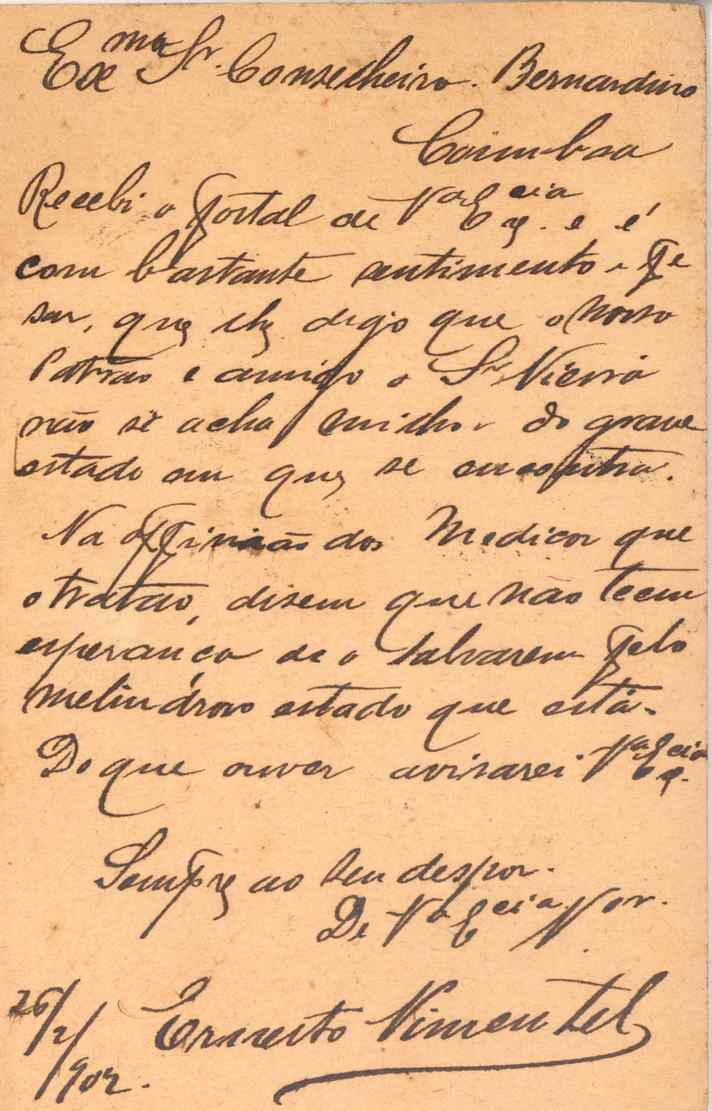 Exmo Sr. Conselheiro. Bernardino
Coimbra
Recebi o postal de Va Excia. e é
com bastante sentimento e pe
sar, que lhe digo que o nosso
Patrão e amigo o Sr. Vieira
não se acha milhor do grave
estado em que se encontra.
Na oppinião dos Medicos que
o tratão, disem que não teem
esperança de o salvarem pelo
melindroso estado que está.
Do que ouver avisarei Va Excia.
Sempre ao seu despor.
De Va Excia
Ernesto Pimentel
26/2/902.